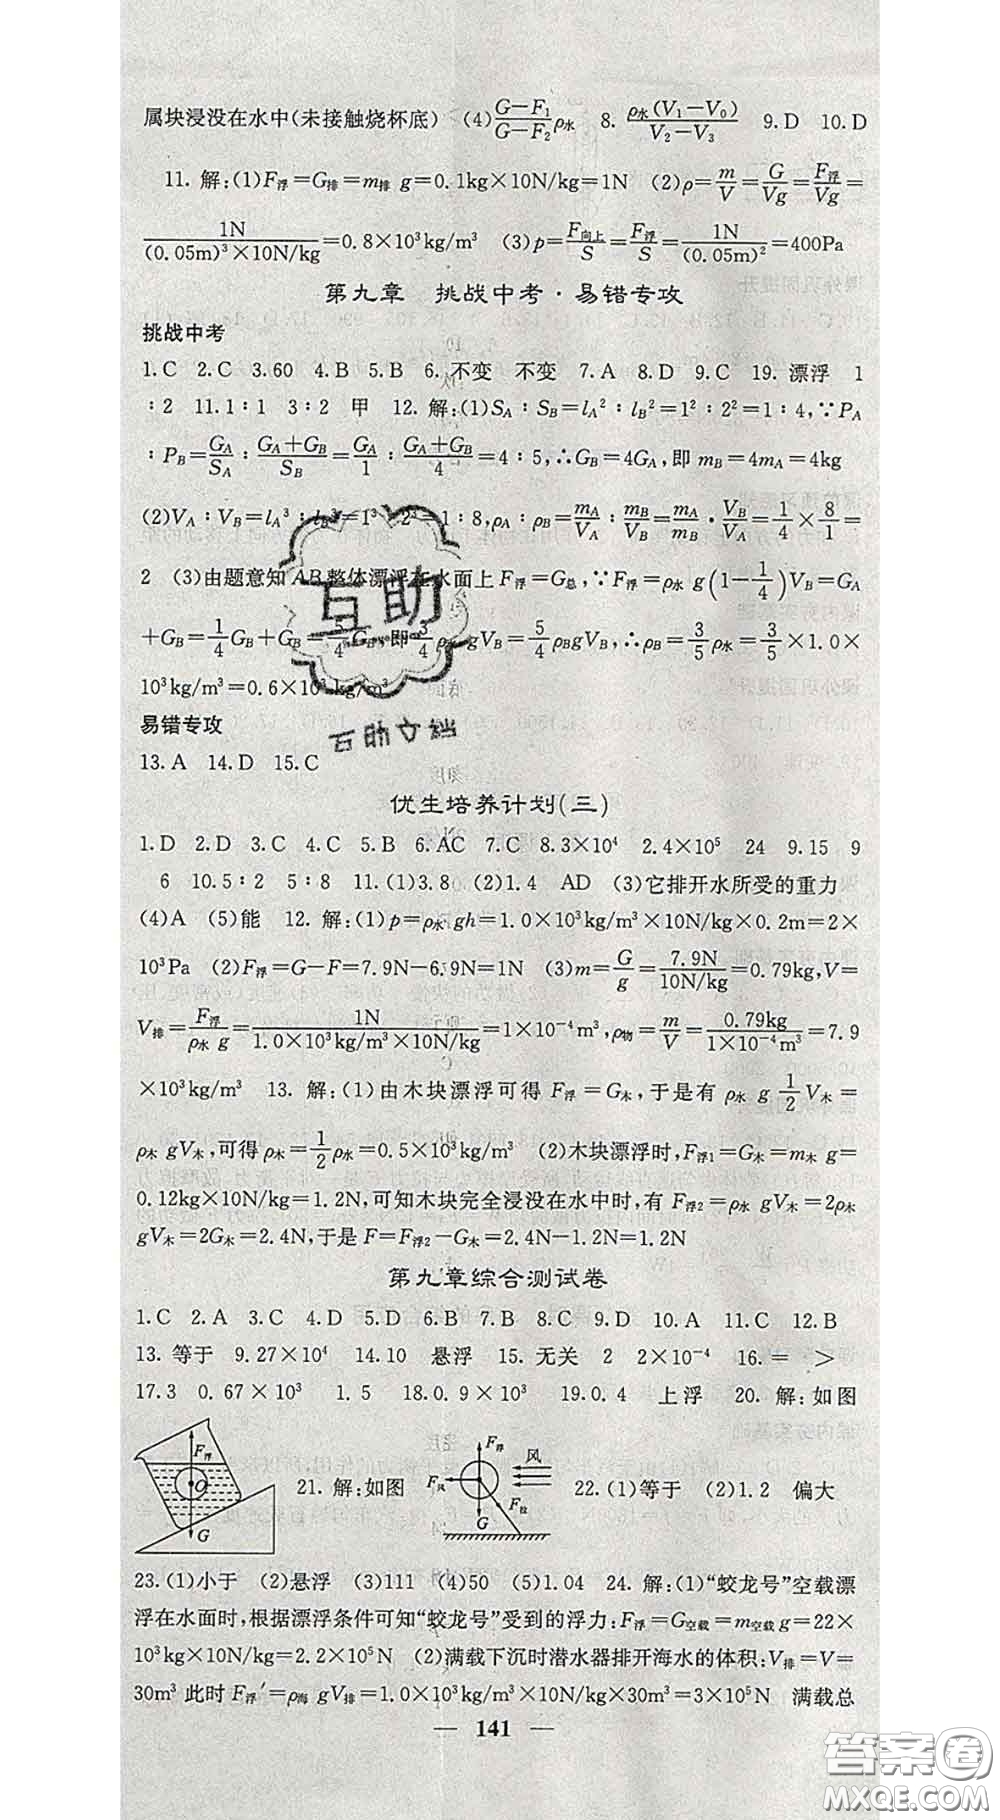 属块浸没在水中(未接触烧杯底) (4)(G-F₁)/(G-F₂)ρ水 8. ρ水(V₁-V₀)/(V₂-V₃) 9. D 10. D
11. 解:(1)F浮=G排=m排 g=0.1kg×10N/kg=1N (2)ρ=m/V=G/Vg=F浮/Vg=
1N/((0.05m)³×10N/kg)=0.8×10³kg/m³ (3)p=F向上/S=F浮/S=1N/(0.05m)²=400Pa
第九章 挑战中考·易错专攻
挑战中考
1. C 2. C 3. 60 4. B 5. B 6. 不变 不变 7. A 8. D 9. C 19. 漂浮 1
∶2 11. 1∶1 3∶2 甲 12. 解:(1)S_A∶S_B=l_A²∶l_B²=1²∶2²=1∶4,∵P_A
∶P_B=G_A/S_A∶(G_A+G_B)/S_B=G_A/1∶(G_A+G_B)/4=4∶5,∴G_B=4G_A,即 m_B=4m_A=4kg
(2)V_A∶V_B=l_A³∶l_B³=1³∶2³=1∶8,ρ_A∶ρ_B=m_A/V_A∶m_B/V_B=m_A/m_B·V_B/V_A=1/4×8/1=
2 (3)由题意知 AB 整体漂浮在水面上 F浮=G总,∵F浮=ρ水 g(1-1/4)V_B=G_A
+G_B=1/4G_B+G_B=5/4G_B,即 3/4ρ水 gV_B=5/4ρ_BgV_B,∴ρ_B=3/5ρ水=3/5×1.0×
10³kg/m³=0.6×10³kg/m³
易错专攻
13. A 14. D 15. C
优生培养计划(三)
1. D 2. D 3. C 4. C 5. B 6. AC 7. C 8. 3×10⁴ 2.4×10⁵ 24 9. 15 9
6 10. 5∶2 5∶8 11. (1)3.8 (2)1.4 AD (3)它排开水所受的重力
(4)A (5)能 12. 解:(1)p=ρ水 gh=1.0×10³kg/m³×10N/kg×0.2m=2×
10³Pa (2)F浮=G-F=7.9N-6.9N=1N (3)m=G/g=7.9N/(10N/kg)=0.79kg,V=
V排=F浮/(ρ水 g)=1N/(1.0×10³kg/m³×10N/kg)=1×10⁻⁴m³,ρ物=m/V=0.79kg/(1×10⁻⁴m³)=7.9
×10³kg/m³ 13. 解:(1)由木块漂浮可得 F浮=G木,于是有 ρ水 g 1/2 V木=
ρ木 gV木,可得 ρ木=1/2ρ水=0.5×10³kg/m³ (2)木块漂浮时,F浮1=G木=m木 g=
0.12kg×10N/kg=1.2N,可知木块完全浸没在水中时,有 F浮2=ρ水 gV木=2ρ木
gV木=2G木=2.4N,于是 F=F浮2-G木=2.4N-1.2N=1.2N
第九章综合测试卷
1. C 2. A 3. C 4. D 5. D 6. B 7. B 8. C 9. D 10. A 11. C 12. B
13. 等于 9.27×10⁴ 14. 10 悬浮 15. 无关 2 2×10⁻⁴ 16. = >
17. 3 0.67×10³ 1.5 18. 0.9×10³ 19. 0.4 上浮 20. 解:如图
F浮 O G 21. 解:如图 F浮 F风 风 F拉 G 22. (1)等于 (2)1.2 偏大
23. (1)小于 (2)悬浮 (3)111 (4)50 (5)1.04 24. 解:(1)“蛟龙号”空载漂
浮在水面时,根据漂浮条件可知“蛟龙号”受到的浮力:F浮=G空载=m空载 g=22×
10³kg×10N/kg=2.2×10⁵N (2)满载下沉时潜水器排开海水的体积:V排=V=
30m³ 此时 F浮′=ρ海 gV排=1.0×10³kg/m³×10N/kg×30m³=3×10⁵N 满载总
— 141 —
互助
答案圈
MXQE.COM